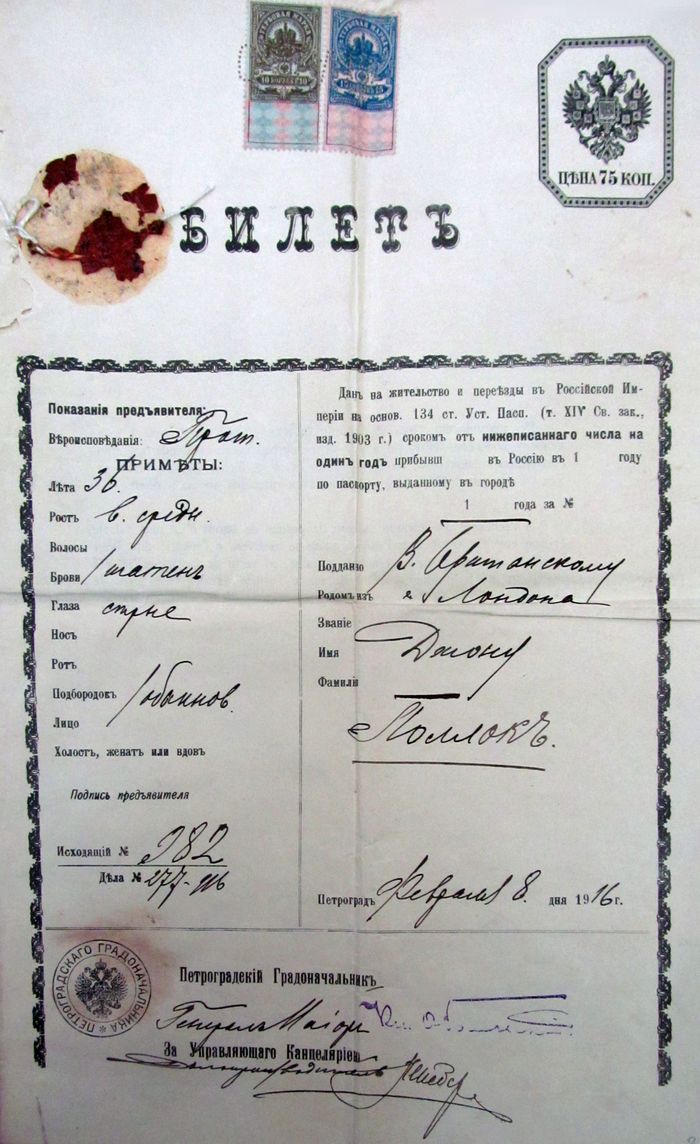 10 КОПѢЕКЪ 10
15 КОПѢЕКЪ 15
ЦѢНА 75 КОП.
БИЛЕТЪ
Показанія предъявителя:
Вѣроисповѣданія: Прот.
ПРИМѢТЫ:
Лѣта 36.
Ростъ в. средн.
Волосы
Брови шатенъ
Глаза сѣрые
Носъ
Ротъ
Подбородокъ обыкнов.
Лицо
Холостъ, женатъ или вдовъ
Подпись предъявителя
Исходящій № 982
Дѣла № 277-916
Данъ на жительство и переѣзды въ Россійской Им-
періи на основ. 134 ст. Уст. Пасп. (т. XIV Св. зак.,
изд. 1903 г.) срокомъ отъ нижеписаннаго числа на
одинъ годъ прибывш въ Россію въ 1 году
по паспорту, выданному въ городѣ
1 года за №
Подданно В. Британскому
Родомъ изъ г. Лондона
Званіе
Имя Джону
Фамилія
Поллокъ.
Петроградъ Февраля 8. дня 1916 г.
ПЕТРОГРАДСКАГО ГРАДОНАЧАЛЬНИКА
Петроградскій Градоначальникъ
Генералъ Маіоръ
За Управляющаго Канцеляріею
Дѣлопроизводитель